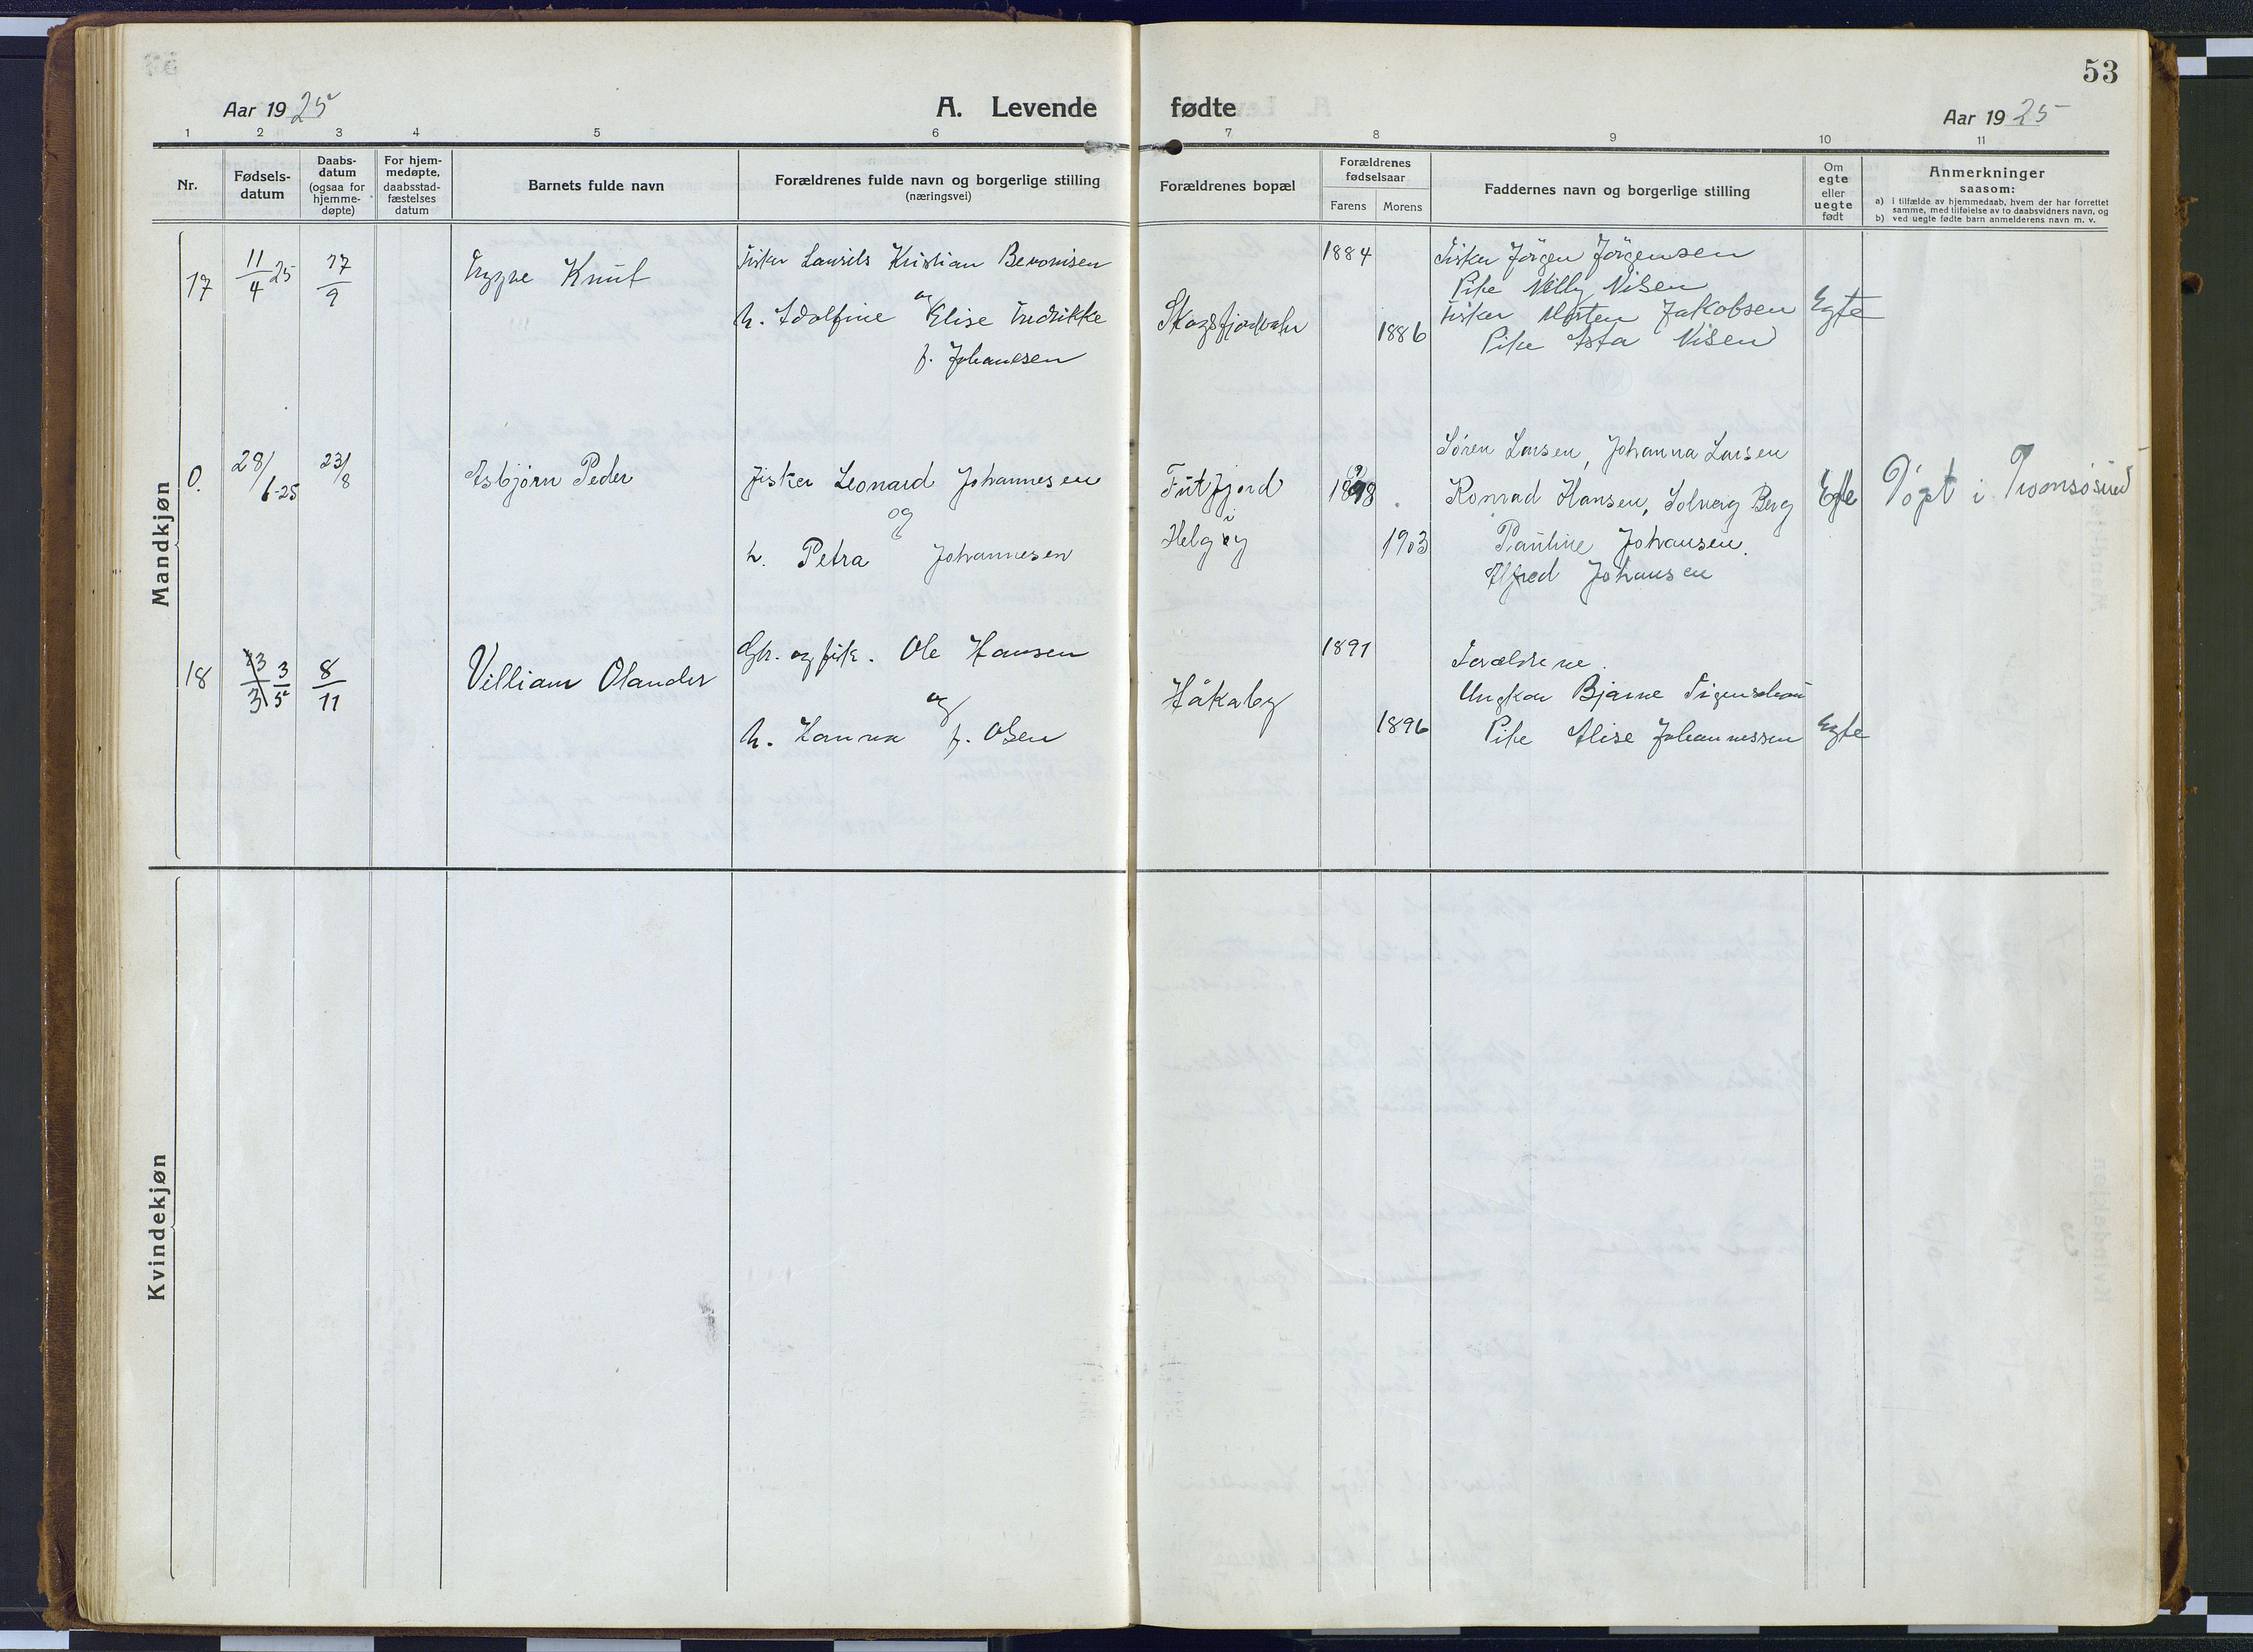 53
Aar 1925
A. Levende fødte
Aar 1925
1 2 3 4 5 6 7 8 9 10 11
Nr.
Fødsels-
datum
Daabs-
datum
(ogsaa for
hjemme-
døpte)
For hjem-
medøpte,
daabsstad-
fæstelses
datum
Barnets fulde navn
Forældrenes fulde navn og borgerlige stilling
(næringsvei)
Forældrenes bopæl
Forældrenes
fødselsaar
Farens Morens
Faddernes navn og borgerlige stilling
Om
egte
eller
uegte
født
Anmerkninger
saasom:
a) i tilfælde av hjemmedaab, hvem der har forrettet
samme, med tilføielse av to daabsvidners navn, og
b) ved uegte fødte barn anmelderens navn m. v.
Mandkjøn
17
11/4 25
Trygve Knut
Fisker Laurits Kristian
og
h. Adolfine Elise Fredrikke
f. Johansen
1884
1886
Fisker Jörgen Jörgensen
Pike Nelly Nilsen
Fisker Jakobsen
Pike Asta Nilsen
Egte
0.
28/6-25
23/8
Asbjörn Peder
Fisker Leonard Johannesen
og
h. Petra Johannesen
Futfjord
i
Helgöy
1898
1903
Sören Larsen, Johanna Larsen
Konrad Hansen, Solveig Berg
Pauline Johansen.
Alfred Johansen
Egte
Döpt i Tromsösund
18
3/5
8/11
Villiam Olander
Gbr. og fisk. Ole Hansen
og
h. Hanna f. Olsen
Håkaby
1891
1896
Forældrene.
Ungkar Bjarne
Pike Alise Johannessen
Egte
Kvindekjøn